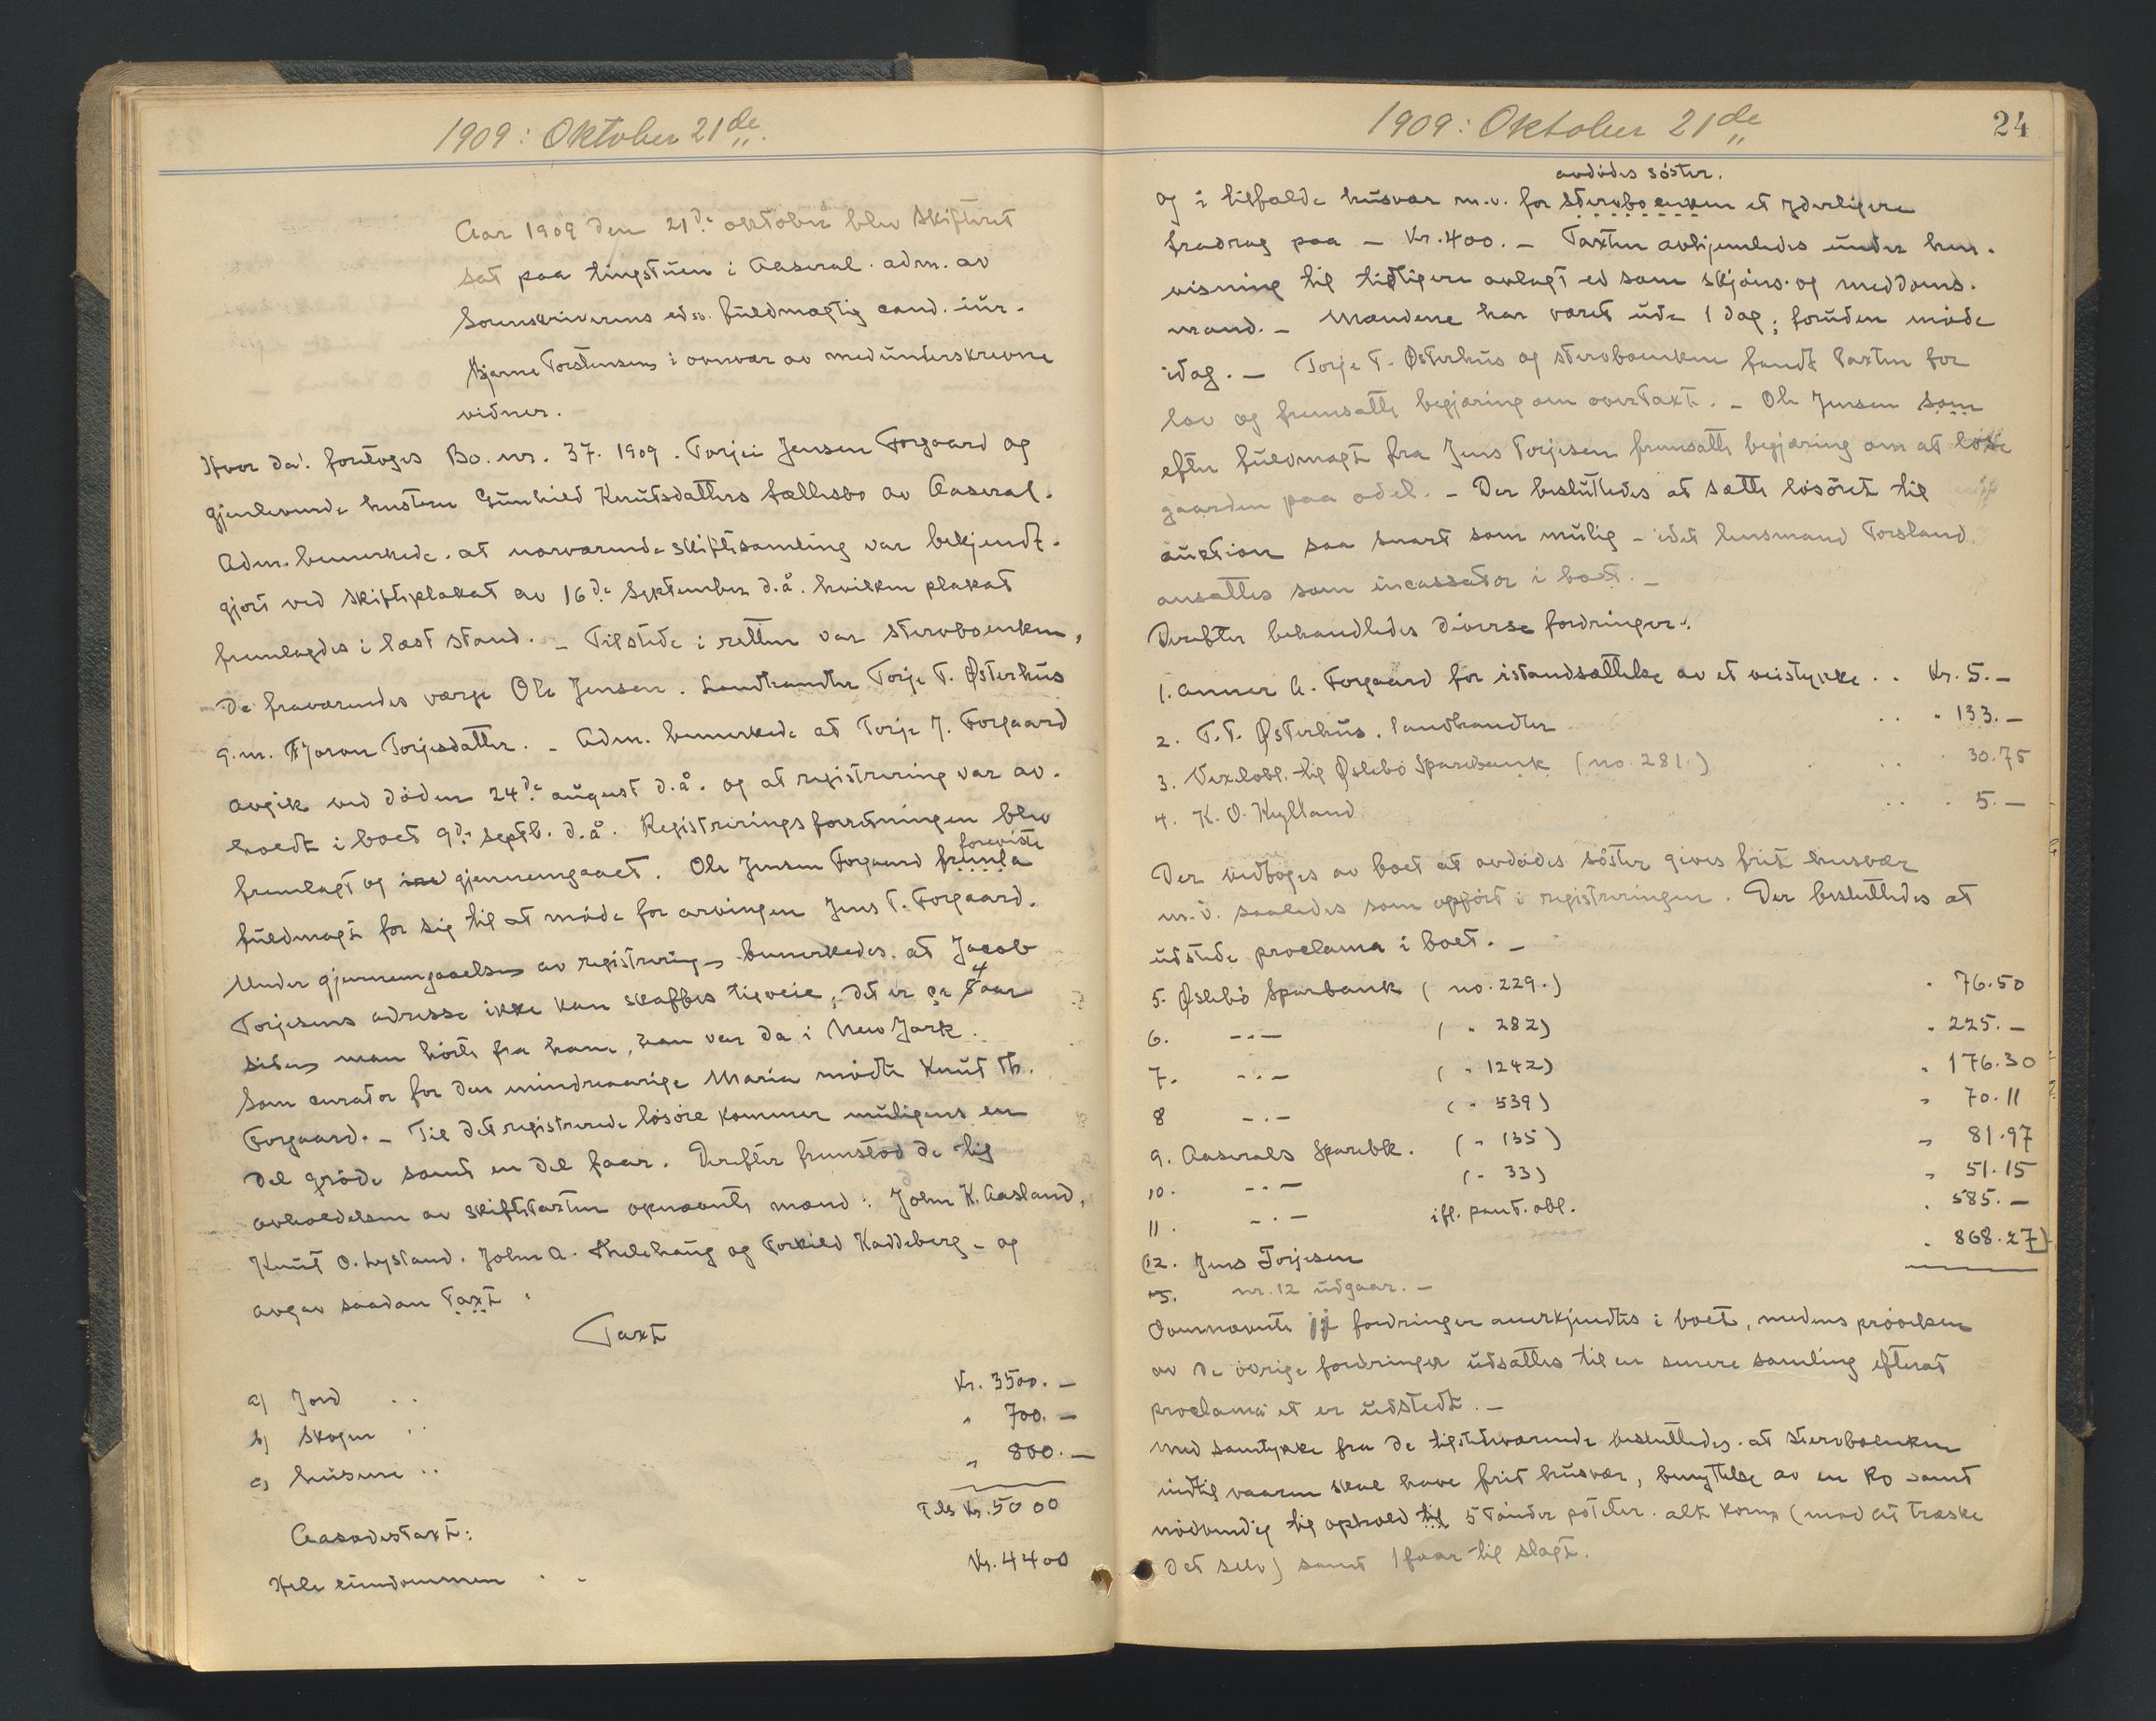 1909: Oktober 21de
Aar 1909 den 21de oktober blev skifteret
sat paa tingstuen i Aaseral. adm. av
Sorenskriverens edsv. fuldmægtig cand. jur.
Bjarne Torstensen i overvær av medunderskrevne
vidner.
Hvor da: foretoges Bo. nr. 37. 1909. Torjei Jensen Forgaard og
gjenlevende hustru Gunhild Knutsdatters fællesbo av Aaseral.
Adm. bemerkede. at nærværende skiftesamling var bekjendt-
gjort ved skifteplakat av 16de September d.å. hvilken plakat
fremlagdes i læst stand. - Tilstede i retten var stervboenken,
de fraværendes værge Ole Jensen. Landhandler Torje T. Østerhus
g.m. Joron Torjesdatter. - Adm. bemerkede at Torje J. Forgaard
avgik ved döden 24de august d.å. og at registrering var av-
holdt i boet 9de septb. d.å. Registreringsforretningen blev
foreviste
fremlagt og gjennemgaaet. Ole Jensen Forgaard fremla
fuldmagt for sig til at møde for arvingen Jens T. Forgaard.
Under gjennemgaaelsen av registrering bemerkedes. at Jacob
4
Torjesens adresse ikke kan skaffes tilveie, det er ca aar
siden man hörte fra ham, han var da i New York.
Som curator for den mindreaarige Maria mödte Knut Th.
Forgaard. - Til det registrerede lösöre kommer muligens en
del gröde samt en del faar. Derefter fremstod de til
avholdelsen av skiftetaxten opnævnte mænd: John K. Aasland,
Knut O. Lystand. John A. Thelehaug og Torkild Kaddeberg - og
avgav saadan Taxt:
Taxt
a) Jord . . Kr. 3500. -
b) Skogen . . " 700. -
c) husene . . " 800. -
Tils Kr. 5000
Aasædestaxt:
Hele eiendommen . . Kr. 4400
1909: Oktober 21de
24
avdödes söster.
og i tilfælde husvær m.v. for stervboenken et yderligere
fradrag paa - Kr. 400. - Taxten avhjemledes under hen-
visning til tidligere avlagt ed som skjöns- og meddoms-
mænd. - Mændene har været ude 1 dag; foruden møde
idag. - Torje T. Østerhus og stervboenken fandt Taxten for
lav og fremsatte begjæring om overtaxt. - Ole Jensen som
efter fuldmagt fra Jens Torjesen fremsatte begjæring om at löse
gaarden paa odel. - Der besluttedes at sætte lösöret til
auktion saa snart som mulig - idet lensmand Torsland
ansattes som incassator i boet. -
Derefter behandledes diverse fordringer:
1. Anner A. Forgaard for istandsættelse av et veistykke . . Kr. 5. -
2. T. T. Østerhus. landhandler . . " 133. -
3. Vexelobl. til Øslebö Sparebank (no. 281.) . . " 30.75
4. K. O. Kylland . . " 5. -
Der vedtoges av boet at avdödes söster gives frit husvær
m.v. saaledes som opfört i registreringen. Der besluttedes at
udstede proclama i boet. -
5. Øslebö Sparbank ( no. 229.) " 76.50
6. -"- ( " 282) " 225. -
7. -"- ( " 1242) " 176.30
8 -"- ( " 539) " 70.11
9. Aaserals Sparebk. ( " 135 ) " 81.97
10. -"- ( " 33) " 51.15
11. -"- ifl. pant. obl. " 585. -
(12. Jens Torjesen " 868.27)
nr. 12 udgaar. -
Ovennævnte fordringer anerkjendtes i boet, medens prövelsen
av de övrige fordringer udsattes til en senere samling efterat
proclama'et er udstedt. -
Med samtykke fra de tilstedeværende besluttedes. at stervboenken
indtil vaaren skal have frit husvær, benyttelse av en ko samt
nödvendig til ophold til 5 tönder poteter. alt korn (mod at træske
det selv) samt 1 faar til slagt.